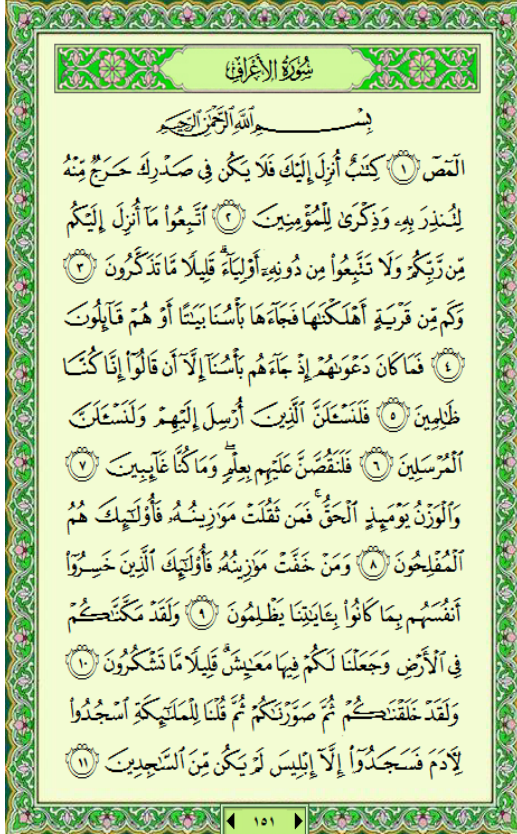 سُورَةُ الأَعْرَافِ
بِسْمِ ٱللَّهِ ٱلرَّحْمَٰنِ ٱلرَّحِيمِ
الٓمٓصٓ ﴿١﴾ كِتَٰبٌ أُنزِلَ إِلَيْكَ فَلَا يَكُن فِى صَدْرِكَ حَرَجٌ مِّنْهُ
لِتُنذِرَ بِهِۦ وَذِكْرَىٰ لِلْمُؤْمِنِينَ ﴿٢﴾ ٱتَّبِعُوا۟ مَآ أُنزِلَ إِلَيْكُم
مِّن رَّبِّكُمْ وَلَا تَتَّبِعُوا۟ مِن دُونِهِۦٓ أَوْلِيَآءَ ۗ قَلِيلًا مَّا تَذَكَّرُونَ ﴿٣﴾
وَكَم مِّن قَرْيَةٍ أَهْلَكْنَٰهَا فَجَآءَهَا بَأْسُنَا بَيَٰتًا أَوْ هُمْ قَآئِلُونَ
﴿٤﴾ فَمَا كَانَ دَعْوَىٰهُمْ إِذْ جَآءَهُم بَأْسُنَآ إِلَّآ أَن قَالُوٓا۟ إِنَّا كُنَّا
ظَٰلِمِينَ ﴿٥﴾ فَلَنَسْـَٔلَنَّ ٱلَّذِينَ أُرْسِلَ إِلَيْهِمْ وَلَنَسْـَٔلَنَّ
ٱلْمُرْسَلِينَ ﴿٦﴾ فَلَنَقُصَّنَّ عَلَيْهِم بِعِلْمٍ ۖ وَمَا كُنَّا غَآئِبِينَ ﴿٧﴾
وَٱلْوَزْنُ يَوْمَئِذٍ ٱلْحَقُّ ۚ فَمَن ثَقُلَتْ مَوَٰزِينُهُۥ فَأُو۟لَٰٓئِكَ هُمُ
ٱلْمُفْلِحُونَ ﴿٨﴾ وَمَنْ خَفَّتْ مَوَٰزِينُهُۥ فَأُو۟لَٰٓئِكَ ٱلَّذِينَ خَسِرُوٓا۟
أَنفُسَهُم بِمَا كَانُوا۟ بِـَٔايَٰتِنَا يَظْلِمُونَ ﴿٩﴾ وَلَقَدْ مَكَّنَّٰكُمْ
فِى ٱلْأَرْضِ وَجَعَلْنَا لَكُمْ فِيهَا مَعَٰيِشَ ۗ قَلِيلًا مَّا تَشْكُرُونَ ﴿١٠﴾
وَلَقَدْ خَلَقْنَٰكُمْ ثُمَّ صَوَّرْنَٰكُمْ ثُمَّ قُلْنَا لِلْمَلَٰٓئِكَةِ ٱسْجُدُوا۟
لِءَادَمَ فَسَجَدُوٓا۟ إِلَّآ إِبْلِيسَ لَمْ يَكُن مِّنَ ٱلسَّٰجِدِينَ ﴿١١﴾
١٥١